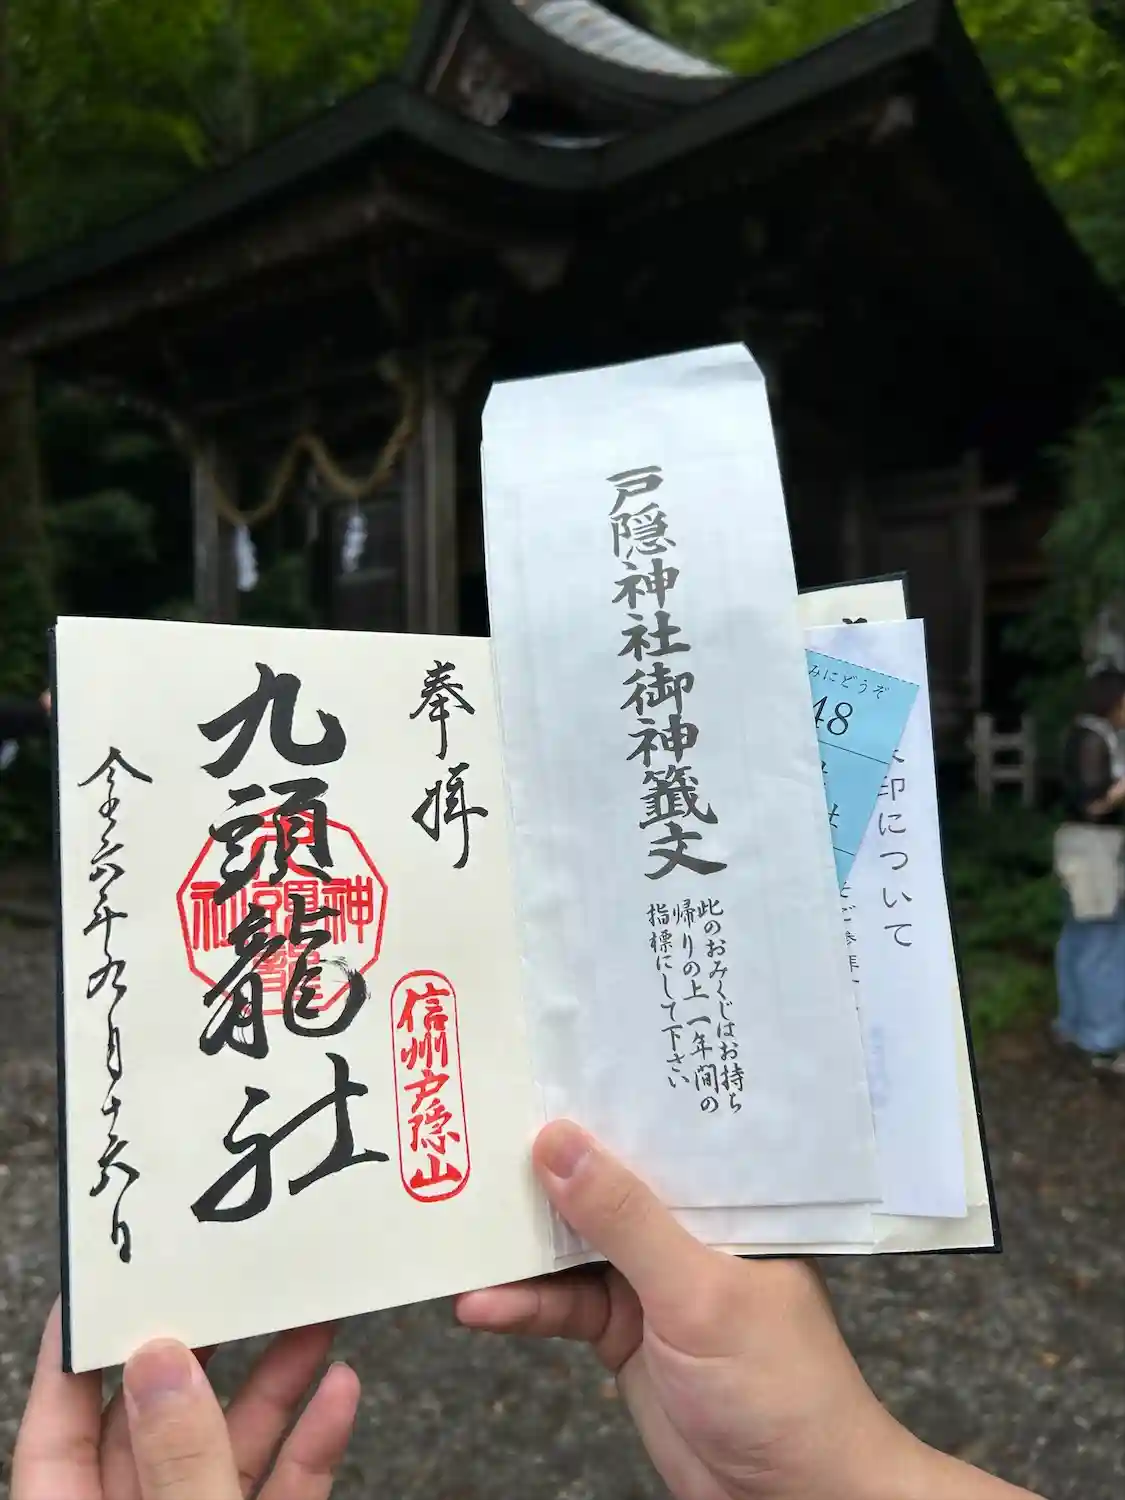 奉拝
九頭龍社
令六年九月十六日
九頭龍神社
信州戸隠山
戸隠神社御神籤文
此のおみくじはお持ち
帰りの上一年間の
指標にして下さい
みにどうぞ
48
印について